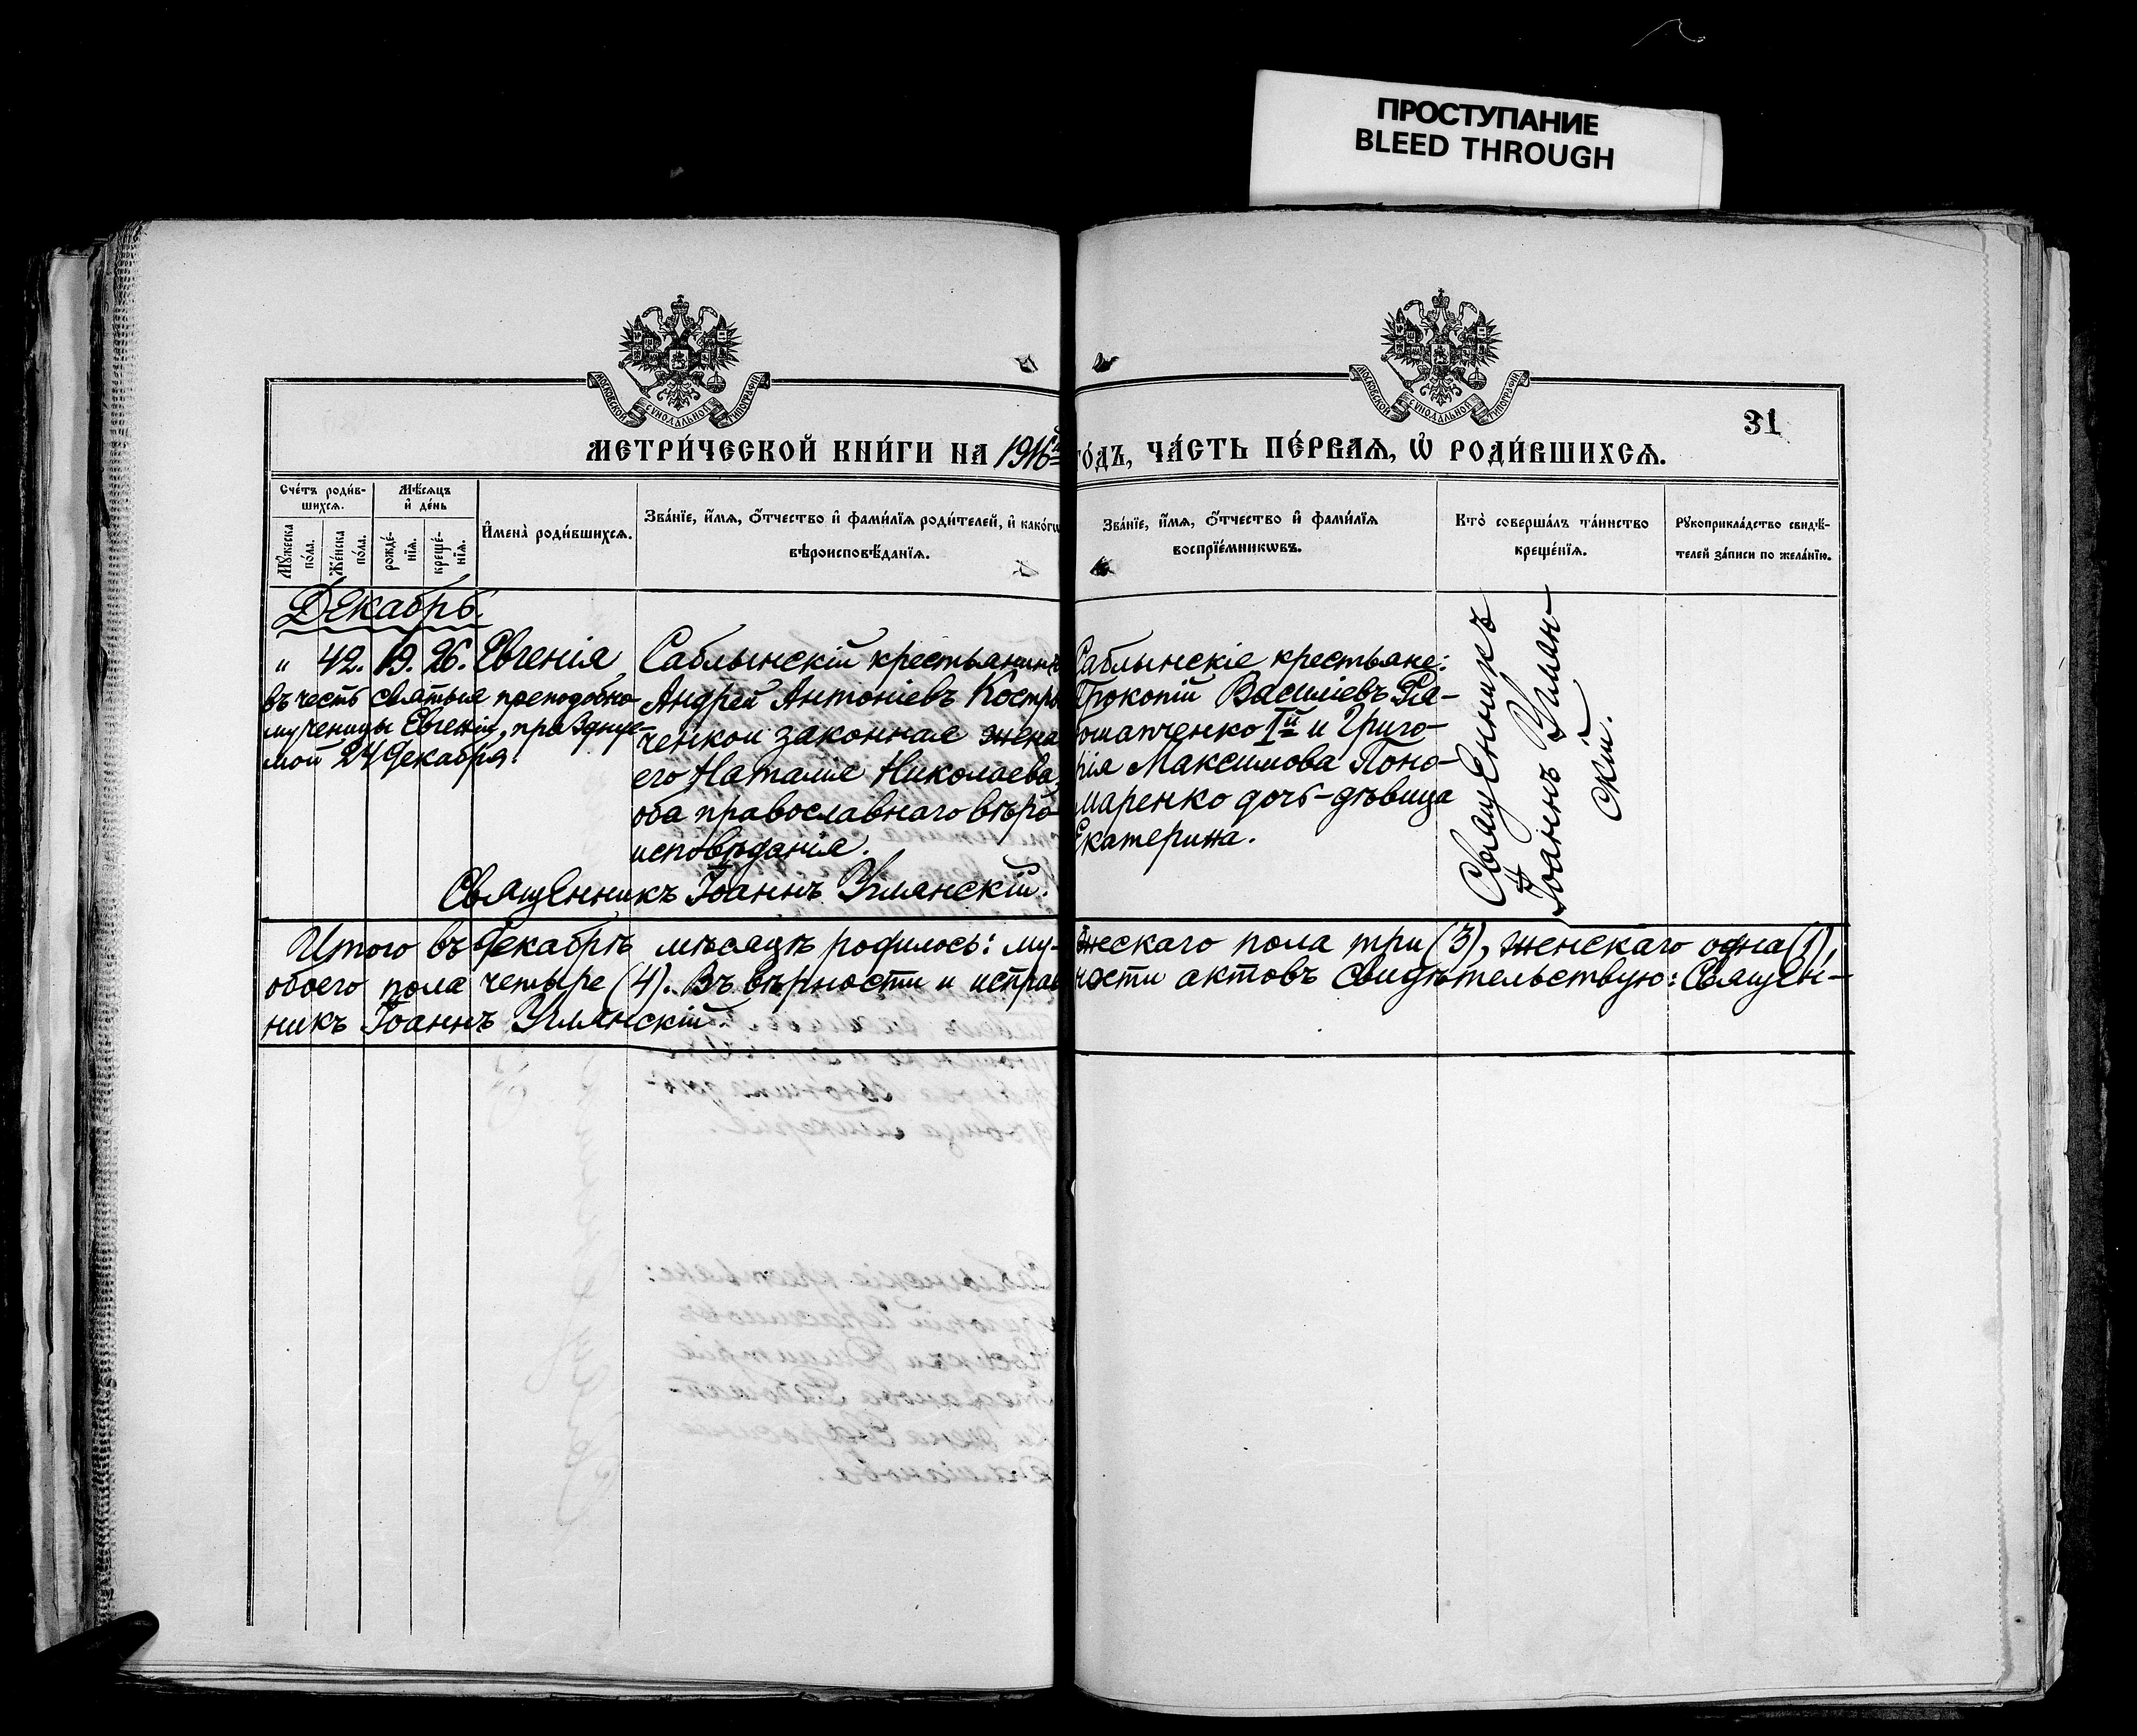 ПРОСТУПАНИЕ
BLEED THROUGH
МОСКОВСКОЙ СѴНОДАЛЬНОЙ ТИПОГРАФІИ
МОСКОВСКОЙ СѴНОДАЛЬНОЙ ТИПОГРАФІИ
31
МЕТРИ́ЧЕСКОЙ КНИ́ГИ НА 1916й
ГО́ДЪ, ЧА́СТЬ ПЕ́РВАЯ, Ѡ҆ РОДИ́ВШИХСѦ.
Сче́тъ роди́в-
шихсѧ.
Мѣ́сѧцъ
и҆ де́нь
Мꙋ́жеска
по́ла.
Же́нска
по́ла.
рожде́-
нїѧ.
креще́-
нїѧ.
И҆мена̀ роди́вшихсѧ.
Зва́нїе, и҆́мѧ, ѻ҆́тчество и҆ фами́лїѧ роди́телей, и҆ како́гѡ
вѣроисповѣ́данїѧ.
Зва́нїе, и҆́мѧ, ѻ҆́тчество и҆ фами́лїѧ
воспрїе́мникѡвъ.
Кто̀ соверша́лъ та́инство
креще́нїѧ.
Рꙋкоприкла́дство свидѣ́-
телей за́писи по жела́нїю.
Декабрь.
" 42. 19. 26. Евгенія
въ честь святыя преподобно-
мученицы Евгеніи, праздnуе-
мой 24 декабря.
Саблынскій крестьянинъ
Андрей Антоніевъ Костро
ченкои законная жена
его Наталіе Николаева,
оба православнаго вѣро-
исповѣданія.
Священникъ Іоаннъ Уманскій.
Саблынскіе крестьяне:
Прокопій Василіевъ Га-
ошапченко Iй и Григо-
рія Максимова Поно-
маренко дочь-дѣвица
Екатерина.
Священникъ
Іоаннъ Уман-
скій.
Итого въ декабрѣ мѣсяцѣ родилось: му-жескаго пола три (3), женскаго одна (1),
обоего пола четыре (4). Въ вѣрности и исправности актовъ свидѣтельствую: Священ-
никъ Іоаннъ Уманскій.